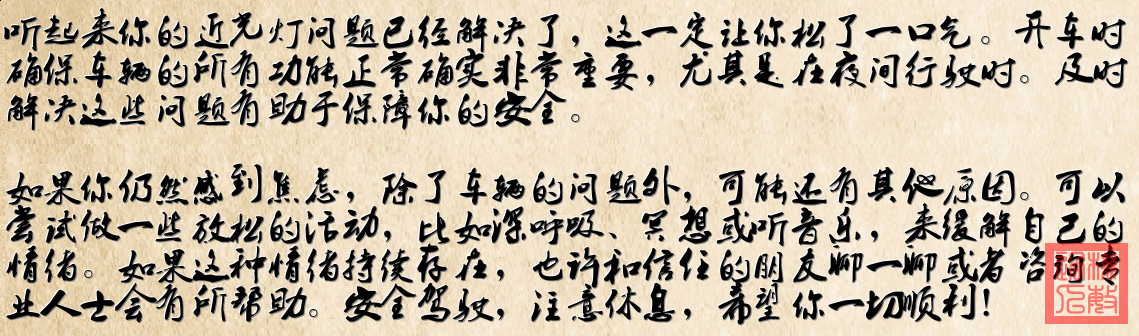 听起来你的近光灯问题已经解决了，这一定让你松了一口气。开车时
确保车辆的所有功能正常确实非常重要，尤其是在夜间行驶时。及时
解决这些问题有助于保障你的安全。
如果你仍然感到焦虑，除了车辆的问题外，可能还有其他原因。可以
尝试做一些放松的活动，比如深呼吸、冥想或听音乐，来缓解自己的
情绪。如果这种情绪持续存在，也许和信任的朋友聊一聊或者咨询专
业人士会有所帮助。安全驾驶，注意休息，希望你一切顺利！